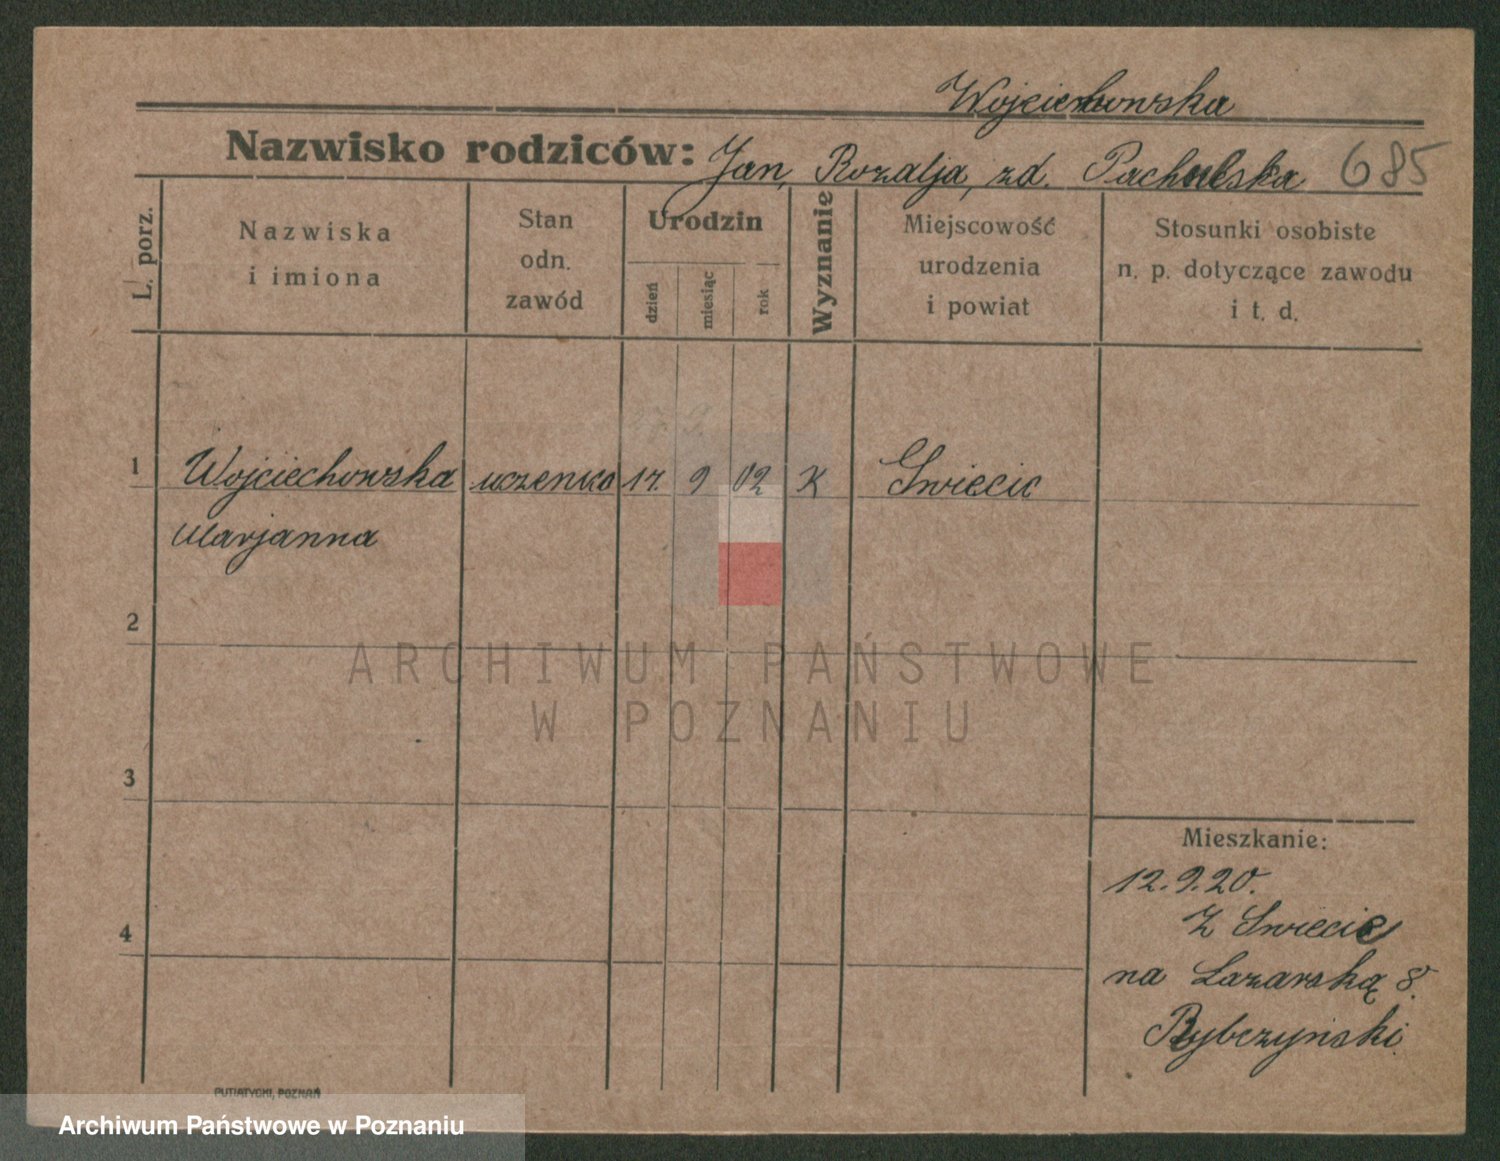 Wojciechowska
Nazwisko rodziców: Jan, Rozalja, zd. Pacholska 685
L. porz.
Nazwiska i imiona
Stan odn. zawód
Urodzin
dzień
miesiąc
rok
Wyznanie
Miejscowość urodzenia i powiat
Stosunki osobiste n. p. dotyczące zawodu i t. d.
27. 9.
1 Wojciechowska uczenica 17. 9 02 K Swiecie
Marjanna
2
3
4
Mieszkanie:
12.9.20.
Z Swiecie
na Lazarską 8.
Rybczyński
PUTIATYCKI, POZNAŃ
ARCHIWUM PAŃSTWOWE
W POZNANIU
Archiwum Państwowe w Poznaniu